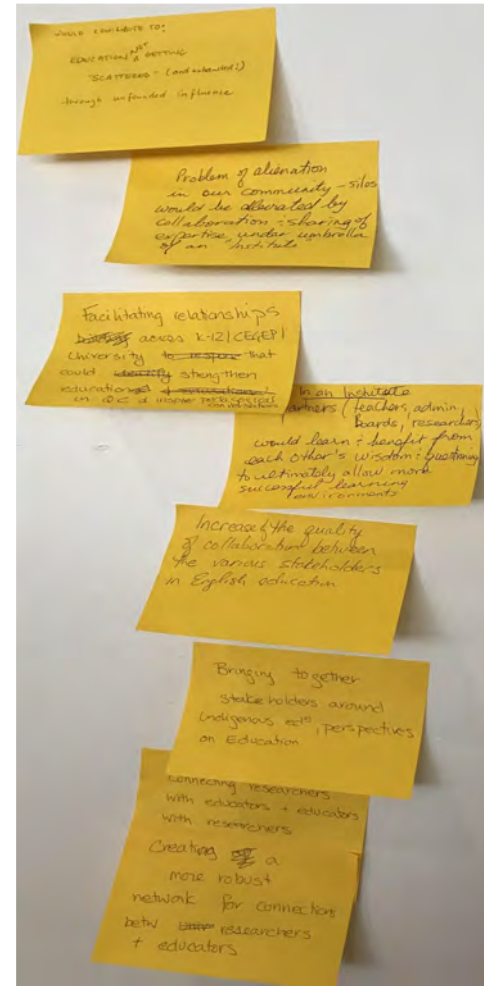 WOULD CONTRIBUTE TO:
EDUCATION NOT GETTING
"SCATTERED" - (and exhausted!)
through unfounded influence
Problem of alienation
in our community - silos
would be alleviated by
collaboration : sharing of
expertise under umbrella
of an "Institute
Facilitating relationships
across K-12/CEGEP/
University to respire that
could identify strengthen
education
in QC & inspire pedagogical
In an Institute
artners (teachers, admin,
Boards, researchers)
would learn : benefit from
each other's wisdom : questioning
to ultimately allow more
successful learning
environments
Increase of the quality
of collaboration between
the various stakeholders
in English education
Bringing together
stakeholders around
Indigenous edº, perspectives
on Education
Connecting researchers
with educators + educators
with researchers
Creating a
more robust
network for connections
betw researchers
+ educators